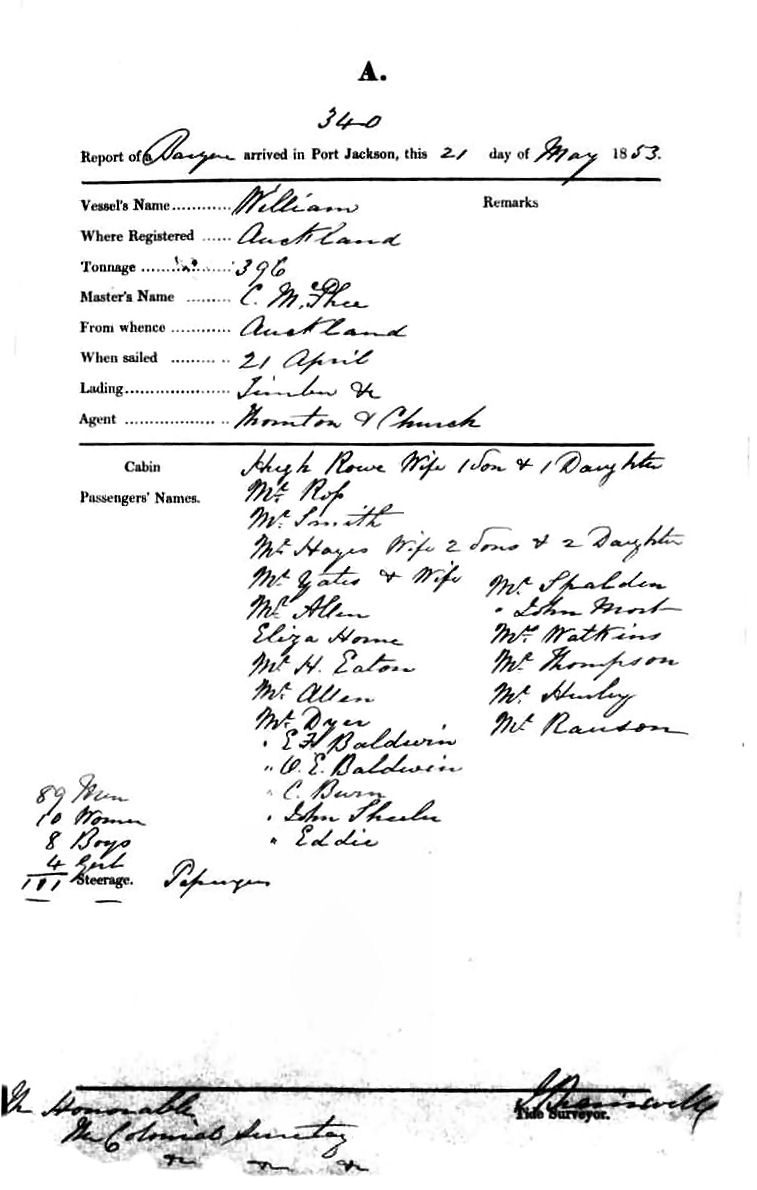 A.
340
Report of a Barque arrived in Port Jackson, this 21 day of May 1853.
Vessel's Name............ William
Remarks
Where Registered ...... Auckland
Tonnage .................. 396
Master's Name ......... C. McPhee
From whence ............ Auckland
When sailed ............ 21 April
Lading..................... Timber &c
Agent ..................... Thornton & Church
Cabin
Passengers' Names.
Hugh Rowe Wife 1 Son & 1 Daughter
Mr. Ross
Mr. Smith
Mr. Hayes Wife 2 Sons & 2 Daughter
Mr. Yates & Wife
Mr. Allen
Eliza Horne
Mr. H. Eaton
Mr. Allen
Mr. Dyer
" E H Baldwin
" O. E. Baldwin
" C. Burn
" John Sheeler
" Eddie
Mr. Spalden
" John Mort
Mr. Watkins
Mr. Thompson
Mr. Hurley
Mr. Rauson
89 Men
10 Women
8 Boys
4 Girl
111 Steerage. Passengers
The Honorable
The Colonial Secretary
&c &c &c
Tide Surveyor.